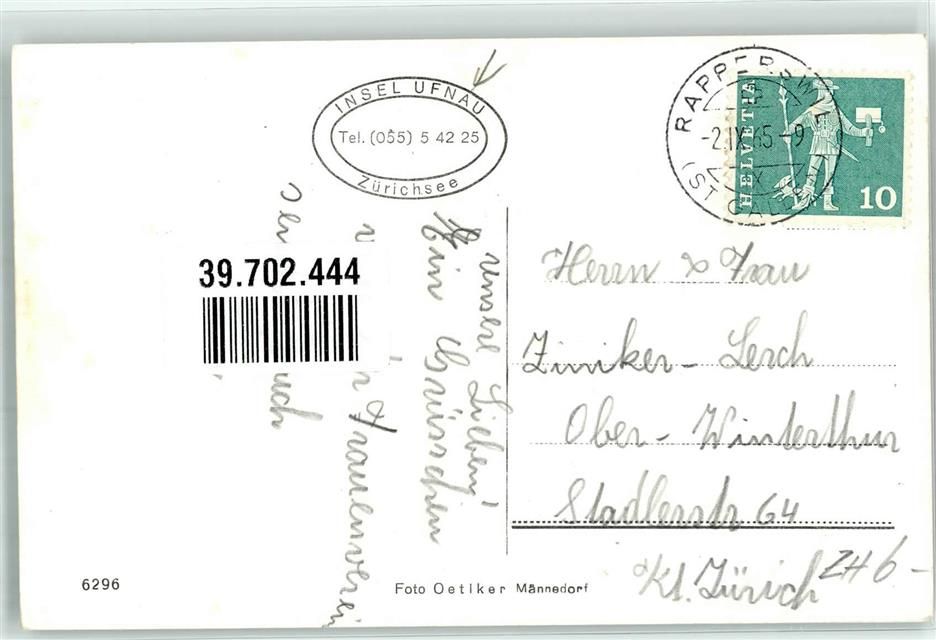 INSEL UFNAU
Tel. (055) 5 42 25
Zürichsee
RAPPERSWIL
-2.IX.65-9
(ST GALLEN)
HELVETIA
10
39.702.444
unsere Lieben!
Ein Grüsschen
Frauenverein
Herrn & Frau
Ziniker-Lerch
Ober-Winterthur
Stadlerstr 64
Kt. Zürich
ZH 6-
6296
Foto Oetiker Männedorf